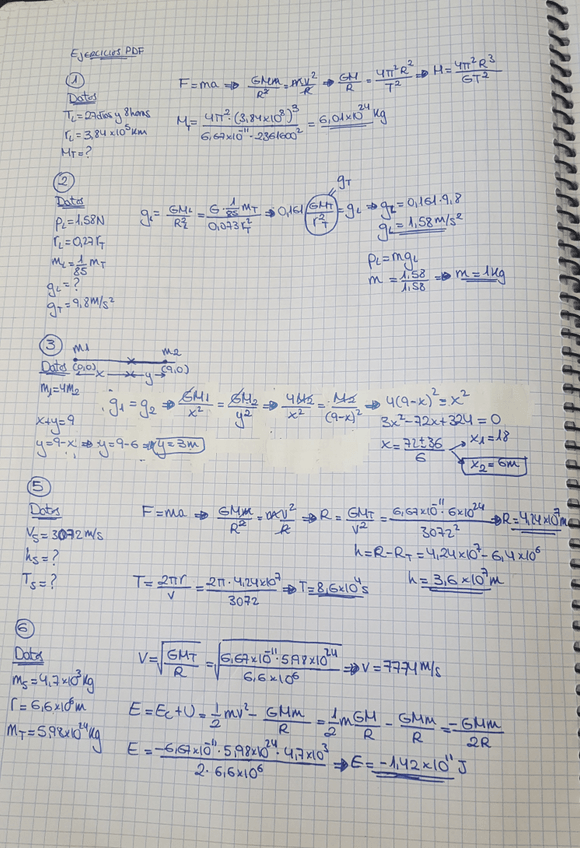 EJERCICIOS PDF
①
Datos
T_L = 27 días y 8 horas
r_L = 3,84×10⁵ km
M_T = ?
F = ma ⇒ GMm/R² = mv²/R ⇒ GM/R = 4π²R²/T² ⇒ M = 4π²R³/GT²
M_T = 4π²·(3,84×10⁸)³ / 6,67×10⁻¹¹·2361600² = 6,01×10²⁴ kg
②
Datos
P_L = 1,58N
r_L = 0,27 r_T
m_L = 1/85 m_T
g_L = ?
g_T = 9,8 m/s²
g_T
g_L = GM_L/R_L² = G·1/85 m_T / 0,073 r_T² ⇒ 0,161 GM_T/r_T² = g_L ⇒ g_L = 0,161·9,8
g_L = 1,58 m/s²
P_L = m g_L
m = 1,58/1,58 ⇒ m = 1 kg
③
m1 m2
Datos (0,0) x y (9,0)
m₁ = 4m₂
x+y = 9
y = 9-x ⇒ y = 9-6 ⇒ y = 3m
g₁ = g₂ ⇒ GM1/x² = GM2/y² ⇒ 4M2/x² = M2/(9-x)² ⇒ 4(9-x)² = x²
3x²-72x+324 = 0
x = 72±36/6
x₁ = 18
x₂ = 6m
⑤
Datos
V_S = 3072 m/s
h_S = ?
T_S = ?
F = ma ⇒ GMm/R² = mv²/R ⇒ R = GM_T/v² = 6,67×10⁻¹¹·6×10²⁴/3072² ⇒ R = 4,24×10⁷ m
h = R-R_T = 4,24×10⁷ - 6,4×10⁶
h = 3,6×10⁷ m
T = 2πr/v = 2π·4,24×10⁷/3072 ⇒ T = 8,6×10⁴ s
⑥
Datos
m_S = 4,7×10³ kg
r = 6,6×10⁶ m
M_T = 5,98×10²⁴ kg
V = √(GM_T/R) = √(6,67×10⁻¹¹·5,98×10²⁴/6,6×10⁶) ⇒ V = 7774 m/s
E = E_C+U = 1/2 mv² - GMm/R = 1/2 m GM/R - GMm/R = -GMm/2R
E = -6,67×10⁻¹¹·5,98×10²⁴·4,7×10³ / 2·6,6×10⁶ ⇒ E = -1,42×10¹¹ J